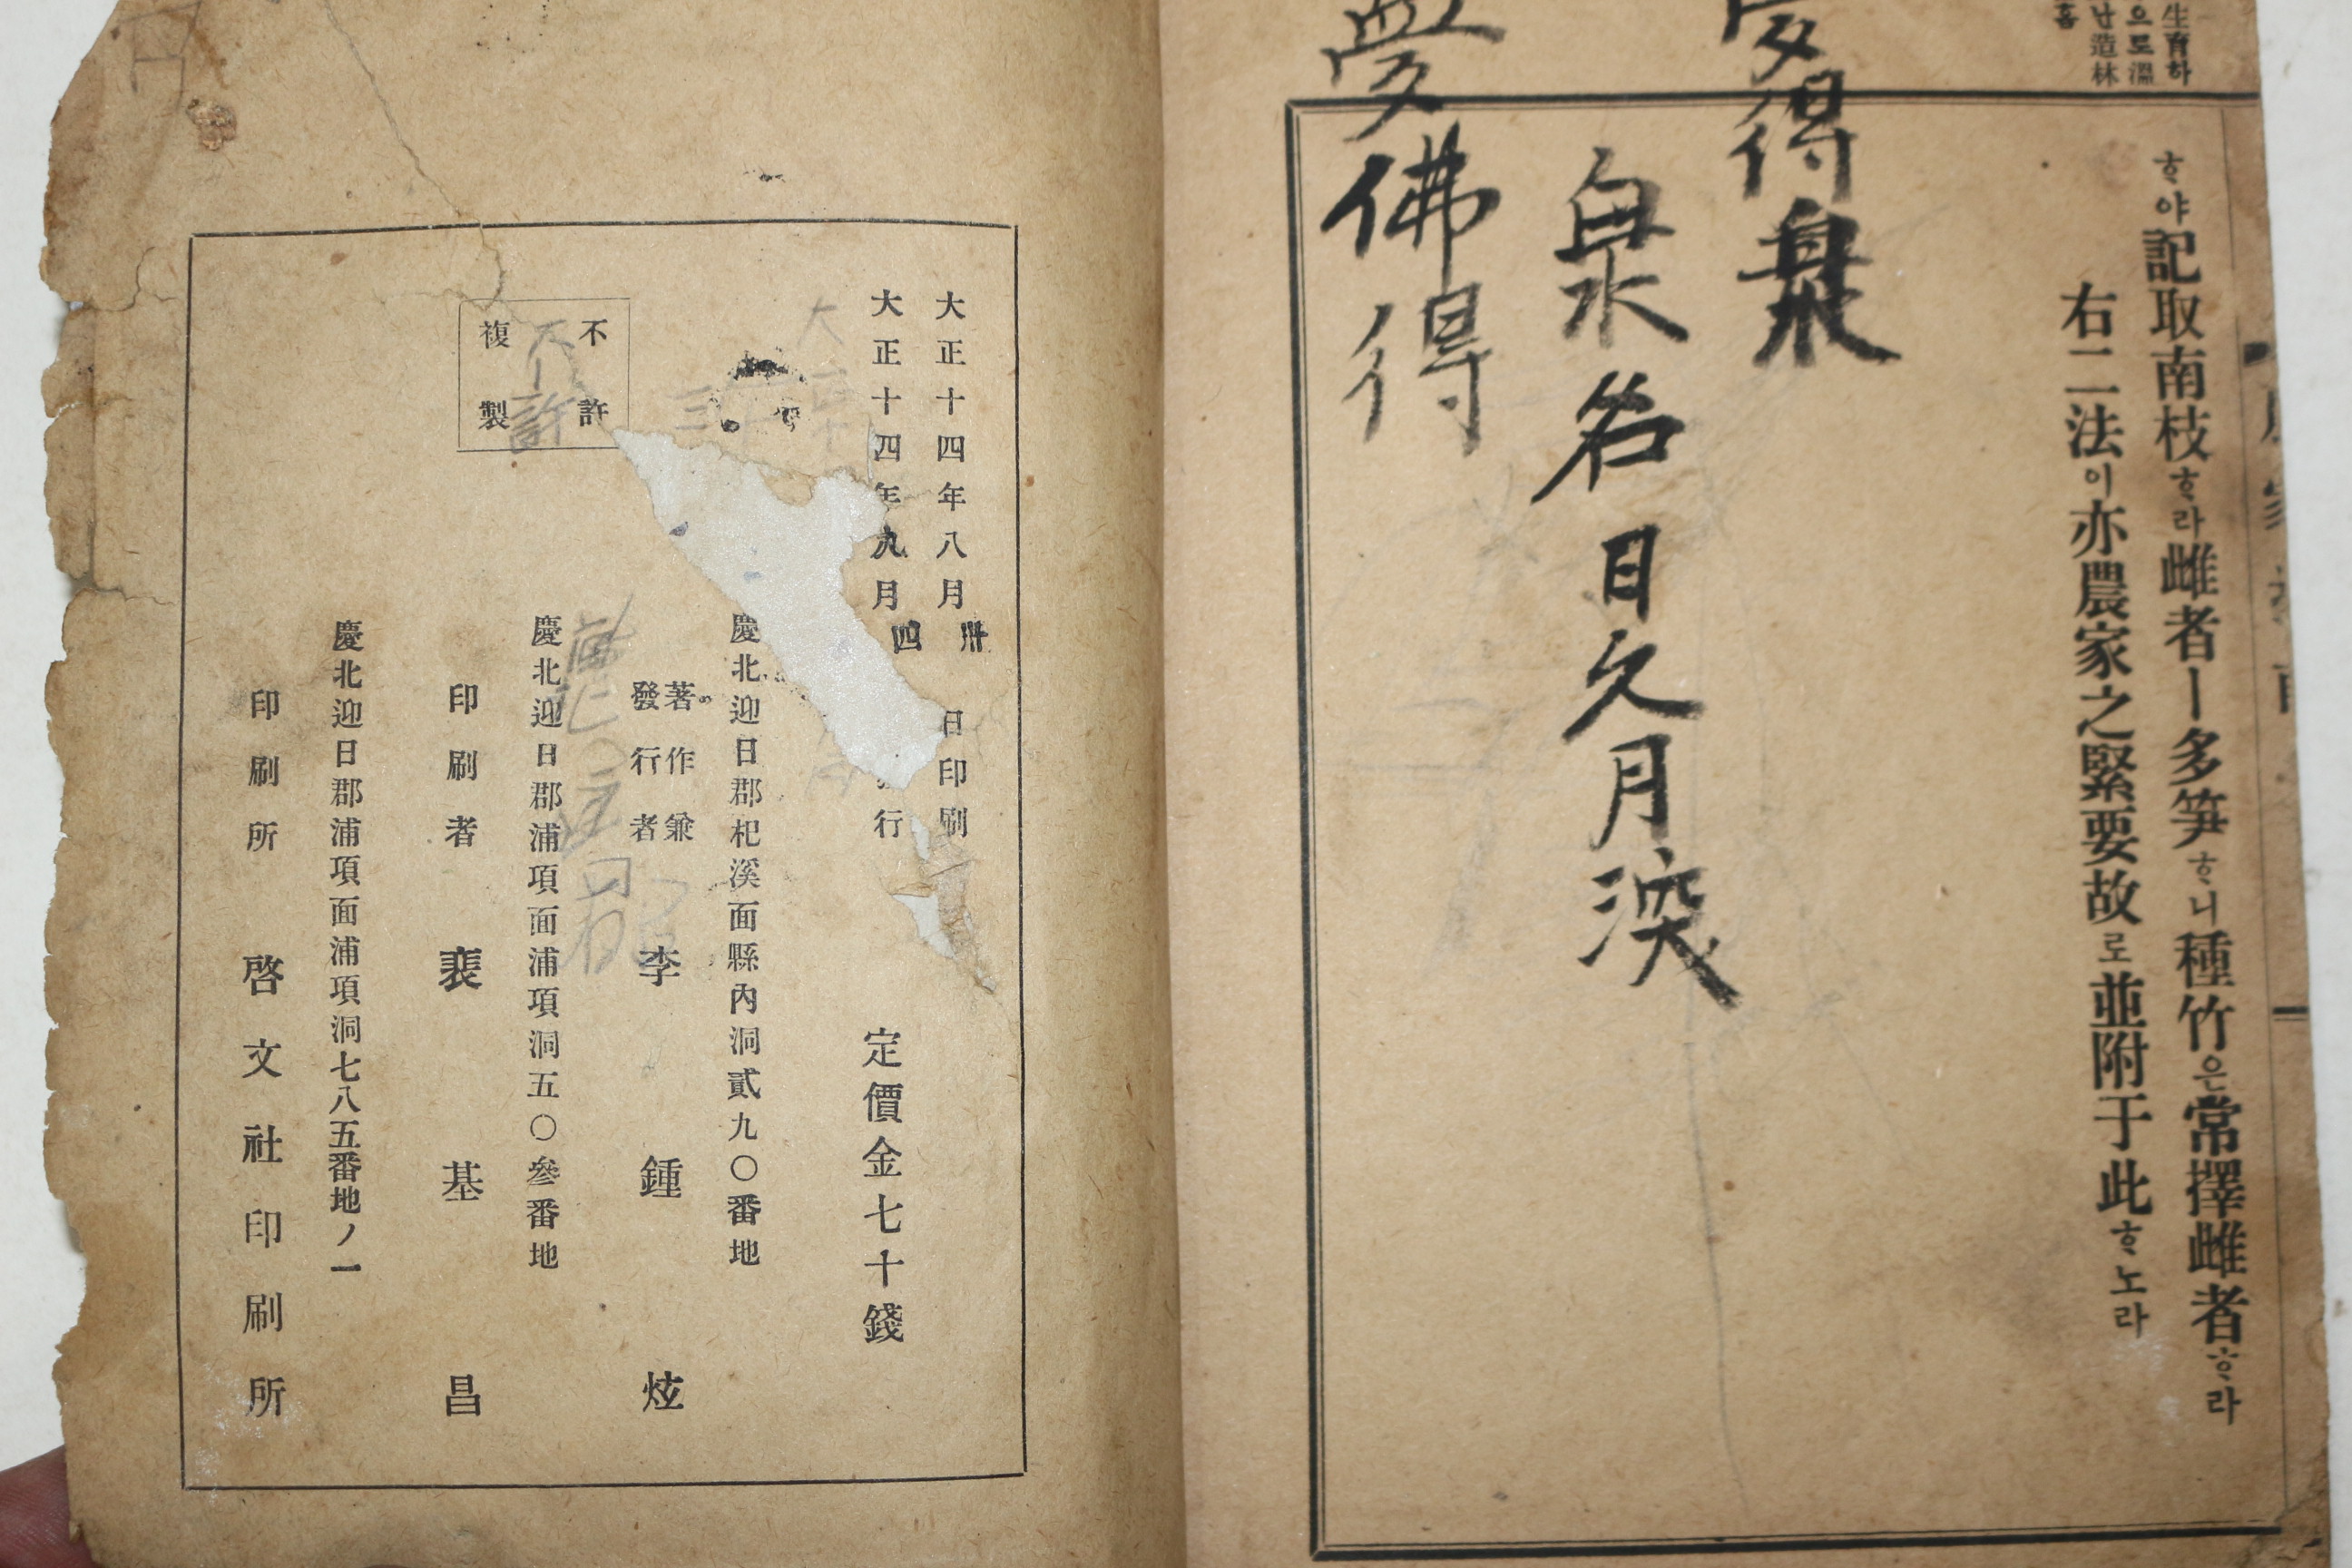 生育하
으로溫
난造林
홈
ᄒᆞ야記取南枝ᄒᆞ라雌者ㅣ多笋ᄒᆞ니種竹은常擇雌者ᄒᆞ라
右二法이亦農家之緊要故로並附于此ᄒᆞ노라
得泉
泉名日久月深
夢佛得
大正十四年八月卅日印刷
大正十四年九月四行
定價金七十錢
不許
複製
慶北迎日郡杞溪面縣內洞貳九〇番地
著作兼
發行者
李鍾炫
慶北迎日郡浦項面浦項洞五〇參番地
印刷者 裵基昌
慶北迎日郡浦項面浦項洞七八五番地ノ一
印刷所 啓文社印刷所
不許